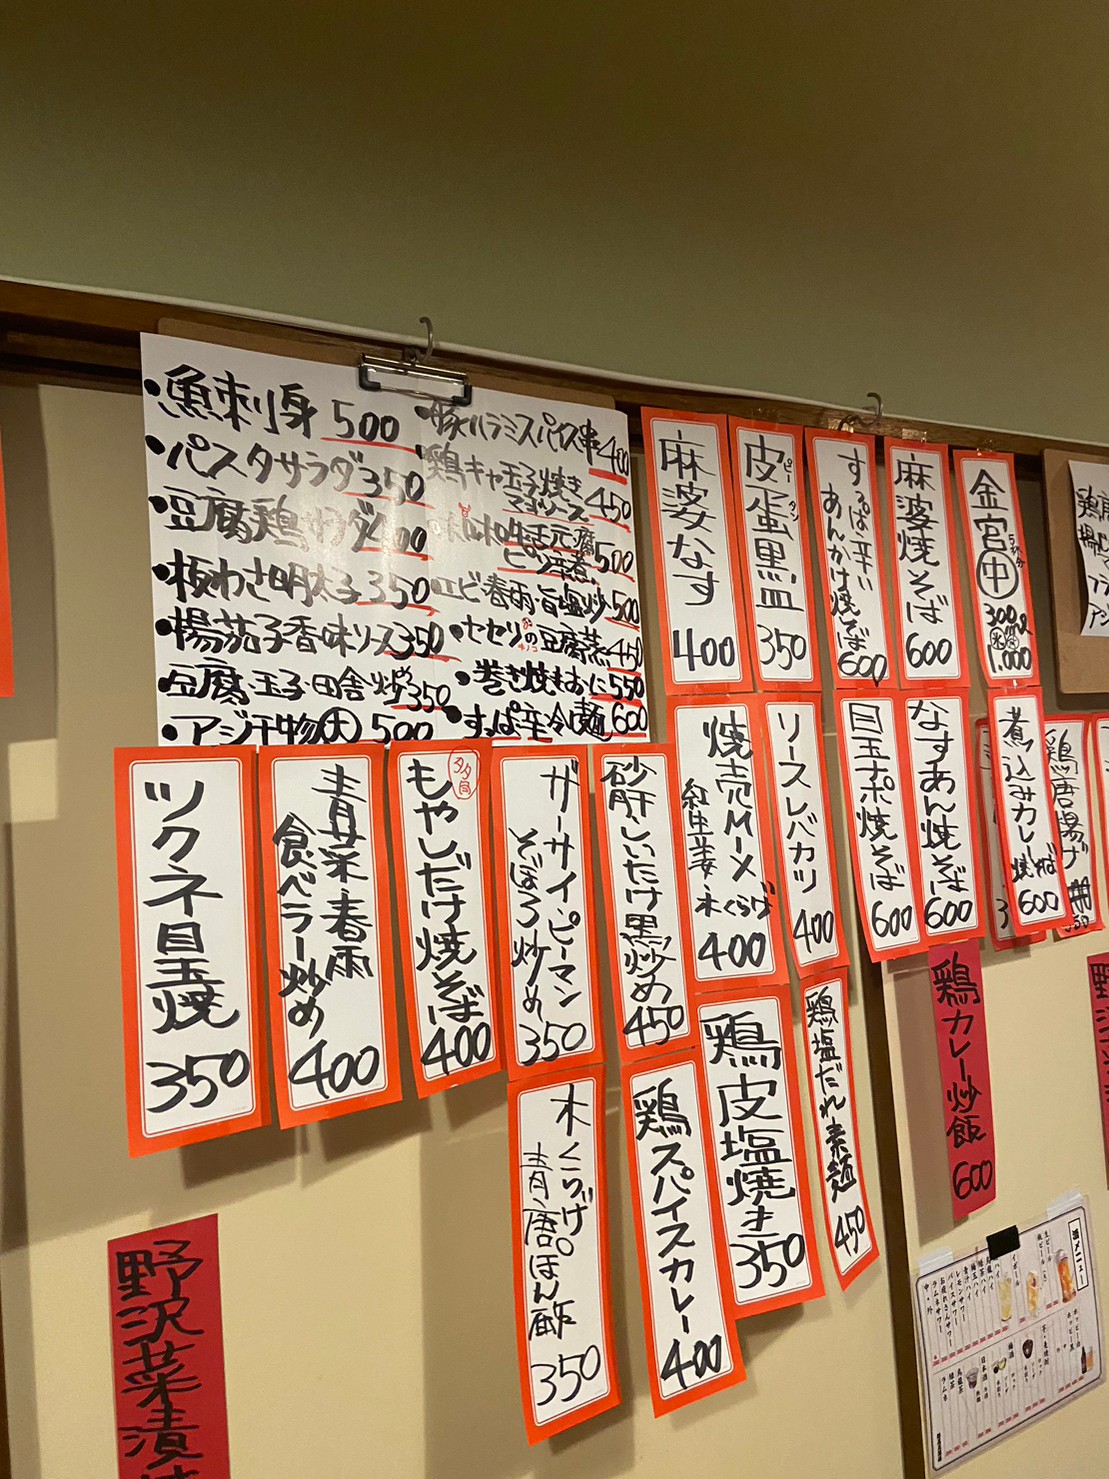 ・魚刺身 500
・パスタサラダ 350
・豆腐鶏サラダ 400
・板わさ明太子 350
・揚茄子香味ソース 350
・豆腐・玉子・田舎炒 350
・アジ干物大 500
・豚ハラミスパイス串 400
鶏キャ玉子焼き
マヨソース 450
500
エビ春雨・旨塩炒 500
・セセリの豆腐蒸 450
・巻き焼きおに 550
・すっぱ辛冷麺 600
麻婆なす 400
皮蛋黒皿 350
ピータン
すっぱ辛い
あんかけ焼そば 600
麻婆焼そば 600
金宮中
5杯分
300ml
氷
1,000
焼売Mーメ
紅生姜・木くらげ
400
ソースレバカツ 400
目玉ナポ焼そば 600
なすあん焼そば 600
煮込みカレー
焼そば
600
鶏唐揚げ
350
ツクネ目玉焼 350
青菜・春雨
食べラー炒め
400
多め
もやしだけ焼そば 400
ザーサイ・ピーマン
そぼろ炒め
350
砂肝しいたけ黒炒め 450
鶏皮塩焼き 350
鶏塩だれ素麺 450
木くらげ
青唐ぽん酢
350
鶏スパイスカレー 400
鶏カレー炒飯 600
野沢菜漬
酒メニュー